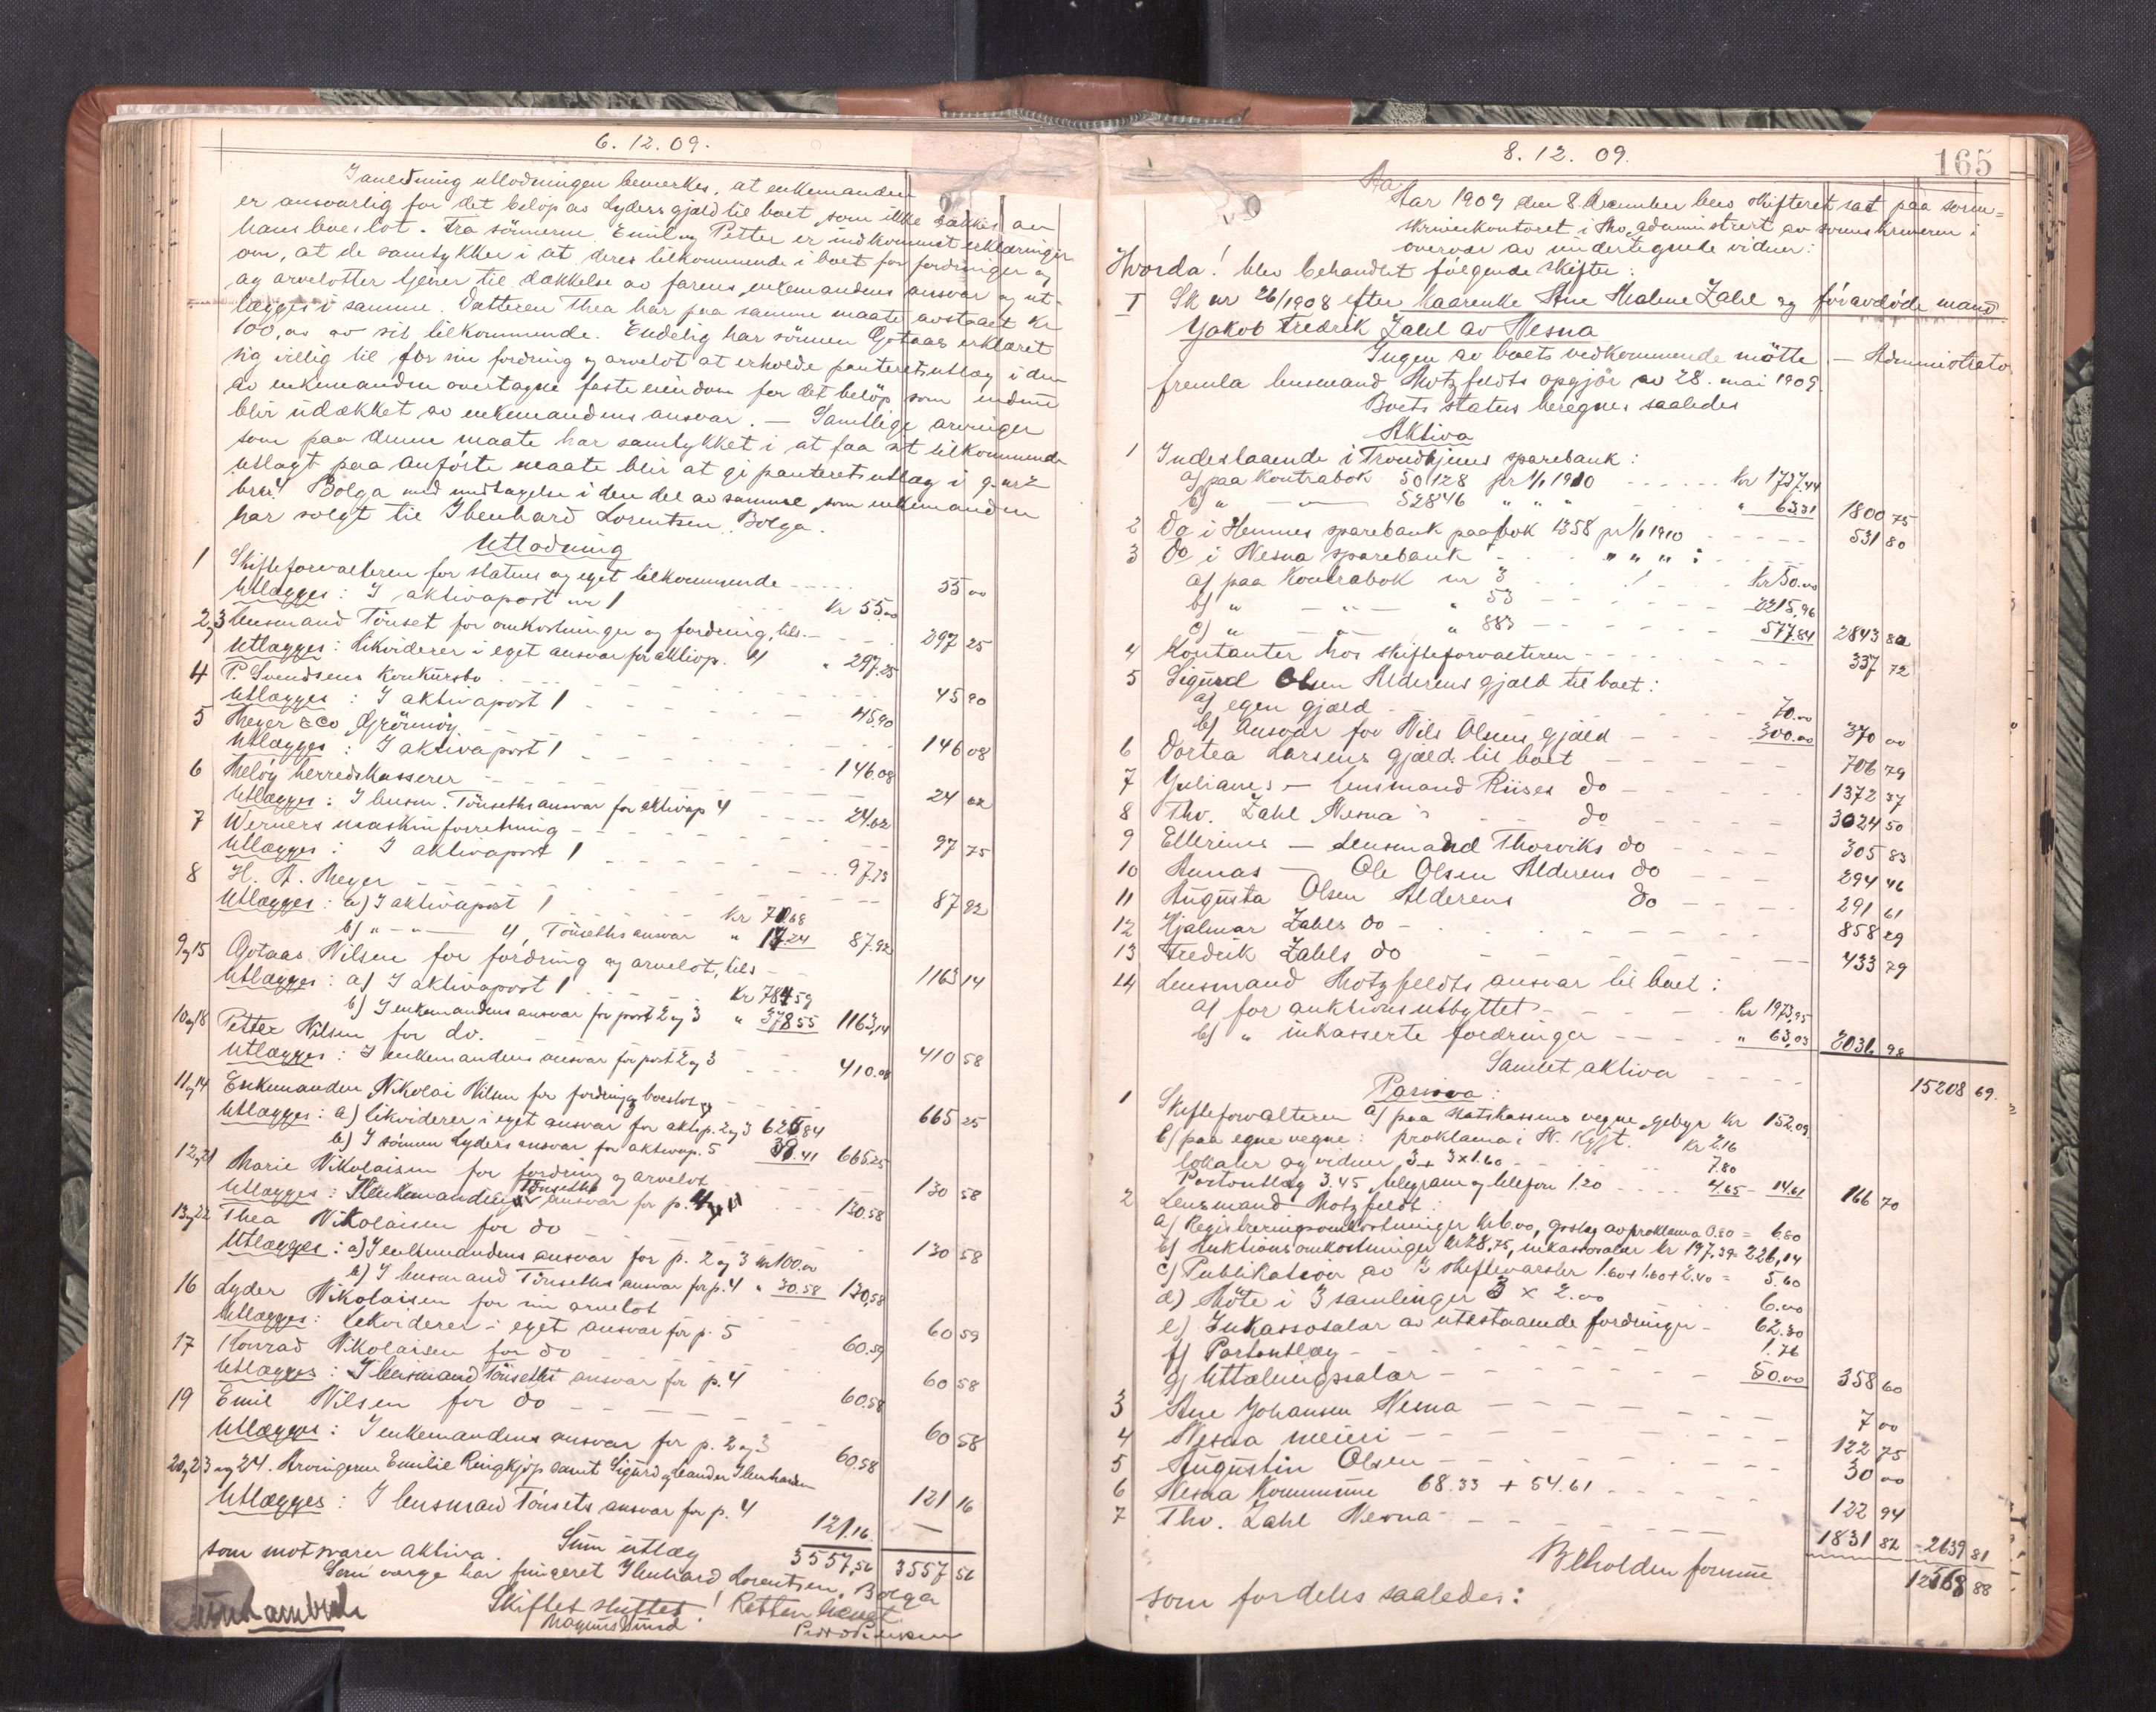 6. 12. 09.
I anledning utlodningen bemerkes, at enkemanden
er ansvarlig for det beløp av Lyders gjæld til boet, som ikke dækkes av
hans boeslot. Fra sønnerne Emil og Petter er indkommet erklæringer
om, at de samtykker i at deres tilkommende i boet for fordringer og
og arvelotter tjener til dækkelse av farens, enkemandens ansvar og ut-
lægges i samme. Datteren Thea har paa samme maate avstaaet kr
100,00 av sit tilkommende. Endelig har sønnen Gotaas erklæret
sig villig til for sin fordring og arvelot at erholde panteretsutlæg i den
av enkemanden overtagne faste eiendom for det beløp som endnu
blir udækket av enkemandens ansvar. — Samtlige arvinger
som paa denne maate har samtykket i at faa sit tilkommende
utlagt paa anførte maate blir at gi panteretsutlæg i g.nr 2
br.nr 1 Bolga med undtagelse i den del av samme, som enkemanden
har solgt til Ibenhard Lorentsen, Bolga.
Utlodning
1 Skifteforvalteren for status og eget tilkommende 55 00
Utlægges: I aktivapost nr 1 kr 55.00
2 og 3 Lensmand Tönset for omkostninger og fordring, tils. 297 25
Utlægges: Likviderer i eget ansvar for aktivp. 4 " 297.25
4 P. Svendsens konkursbo 45 90
Utlægges: I aktivapost 1 45.90
5 Meyer & Co Grönnöy 146 08
Utlægges: I aktivapost 1 146.08
6 Meløy herredskasserer 24 02
Utlægges: I lensm. Tönseths ansvar for aktivap 4 24.02
7 Werners maskinforretning 97 75
Utlægges: I aktivapost 1 97.75
8 H. A. Meyer 87 92
Utlægges: a) I aktivapost 1 kr 70.68
b) " — " — 4, Tönseths ansvar " 17.24 87.92
9 og 15 Gotaas Nilsen for fordring og arvelot, tils 1163 14
Utlægges: a) I aktivapost 1 kr 784.59
b) I enkemandens ansvar for post 2 og 3 " 378.55 1163,14
10 og 18 Petter Nilsen for do. 410 58
Utlægges: I enkemandens ansvar for post 2 og 3 410.58
11 og 14 Enkemanden Nikolai Nilsen for fordring og boeslot 665 25
Utlægges: a) likviderer i eget ansvar for aktp. 2 og 3 626.84
b) I sønnen Lyders ansvar for aktivap. 5 38.41 665.25
12 og 21 Marie Nikolaisen for fordring og arvelot 130 58
Utlægges: I Tönseths ansvar for p. 4 130.58
13 og 22 Thea Nikolaisen for do 130 58
Utlægges: a) I enkemandens ansvar for p. 2 og 3 kr 100.00
b) I lensmand Tönseths ansvar for p. 4 " 30.58 130,58
16 Lyder Nikolaisen for sin arvelot 60 59
Utlægges: likviderer i eget ansvar for p. 5 60.59
17 Konrad Nikolaisen for do 60 58
Utlægges: I lensmand Tönseths ansvar for p. 4 60.58
19 Emil Nilsen for do 60 58
Utlægges: I enkemandens ansvar for p. 2 og 3 60.58
20, 23 og 24. Arvingerne Emilie Ringkjøp samt Sigurd og Leander Ibenhardsen 121 16
Utlægges: I lensmand Tönsets ansvar for p. 4 121.16
Sum utlæg 3557,56 3557 56
som motsvarer aktiva.
Som verge har fungeret Ibenhard Lorentsen, Bolga
Skiftet sluttet! Retten hævet
Magnus Sund
8. 12. 09.
165
Aar 1909 den 8. december blev skifteret sat paa soren-
skriverkontoret i Mo, administrert av sorenskriveren i
overvær av undertegnede vidner:
Hvorda! blev behandlet følgende skifter:
I Sk nr 26/1908 efter kaarenke Ane Malene Zahl og føravdøde mand
Jakob Fredrik Zahl av Nesna
Ingen av boets vedkommende mötte. — Administrator
fremla lensmand Motzfeldts opgjör av 28. mai 1909.
Boets status beregnes saaledes
Aktiva
1 Indestaaende i Trondhjems sparebank:
a) paa Kontrabok 50128 pr 1/1 1910 kr 1737.44
b) " — " — 52846 " " " " 63.31 1800 75
2 Do i Hemnes sparebank paa bok 1358 pr 1/1 1910 531 80
3 Do i Nesna sparebank " " " :
a) paa Kontrabok nr 3 kr 50.00
b) " — " — " 53 2215,96
c) " — " — " 883 577.84 2843 80
4 Kontanter hos skifteforvalteren 337 72
5 Sigurd Olsen Alderens gjæld til boet:
a) egen gjæld 70.00
b) Ansvar for Nils Olsens gjæld 300.00 370 00
6 Dortea Larsens gjæld til boet 706 79
7 Julianes — lensmand Riises do 1372 37
8 Thv. Zahl Nesna's do 3024 50
9 Ellerines — lensmand Thorviks do 305 83
10 Annas — Ole Olsen Alderens do 294 46
11 Augusta Olsen Alderens do 291 61
12 Hjalmar Zahls do 858 29
13 Fredrik Zahls do 433 79
14 Lensmand Motzfeldts ansvar til boet:
a) for auktionsutbyttet kr 1973,95
b) " inkasserte fordringer " 63,03 2036 98
Samlet aktiva 15208 69.
Passiva:
1 Skifteforvalteren a) paa statskassens vegne, gebyr kr 152.09
b) paa egne vegne: proklama i N. Kgjt. kr 2.16
lokaler og vidner 3 + 3 x 1.60 7.80
Portoutlæg 3.45, telegram og telefon 1.20 4.65 14.61 166 70
2 Lensmand Motzfeldt:
a) Registreringsomkostninger kr 6.00, opslag av proklama 0.80 = 6.80
b) Auktionsomkostninger kr 28,75, inkassosalær kr 197,39 = 226,14
c) Publikation av 3 skiftevarsler 1.60 + 1.60 + 2.40 = 5.60
d) Möte i 3 samlinger 3 x 2.00 6.00
e) Inkassosalær av utestaaende fordringer 62.30
f) Portoutlæg 1.76
g) Uttælingssalær 50.00 358 60
3 Ane Johansen Nesna 7 00
4 Nesna meieri 122 75
5 Augustin Olsen 30 00
6 Nesna Kommune 68.33 + 54.61 122 94
7 Thv. Zahl Nesna 1831 82 2639 81
Beholden formue 12568 88
som fordeles saaledes: